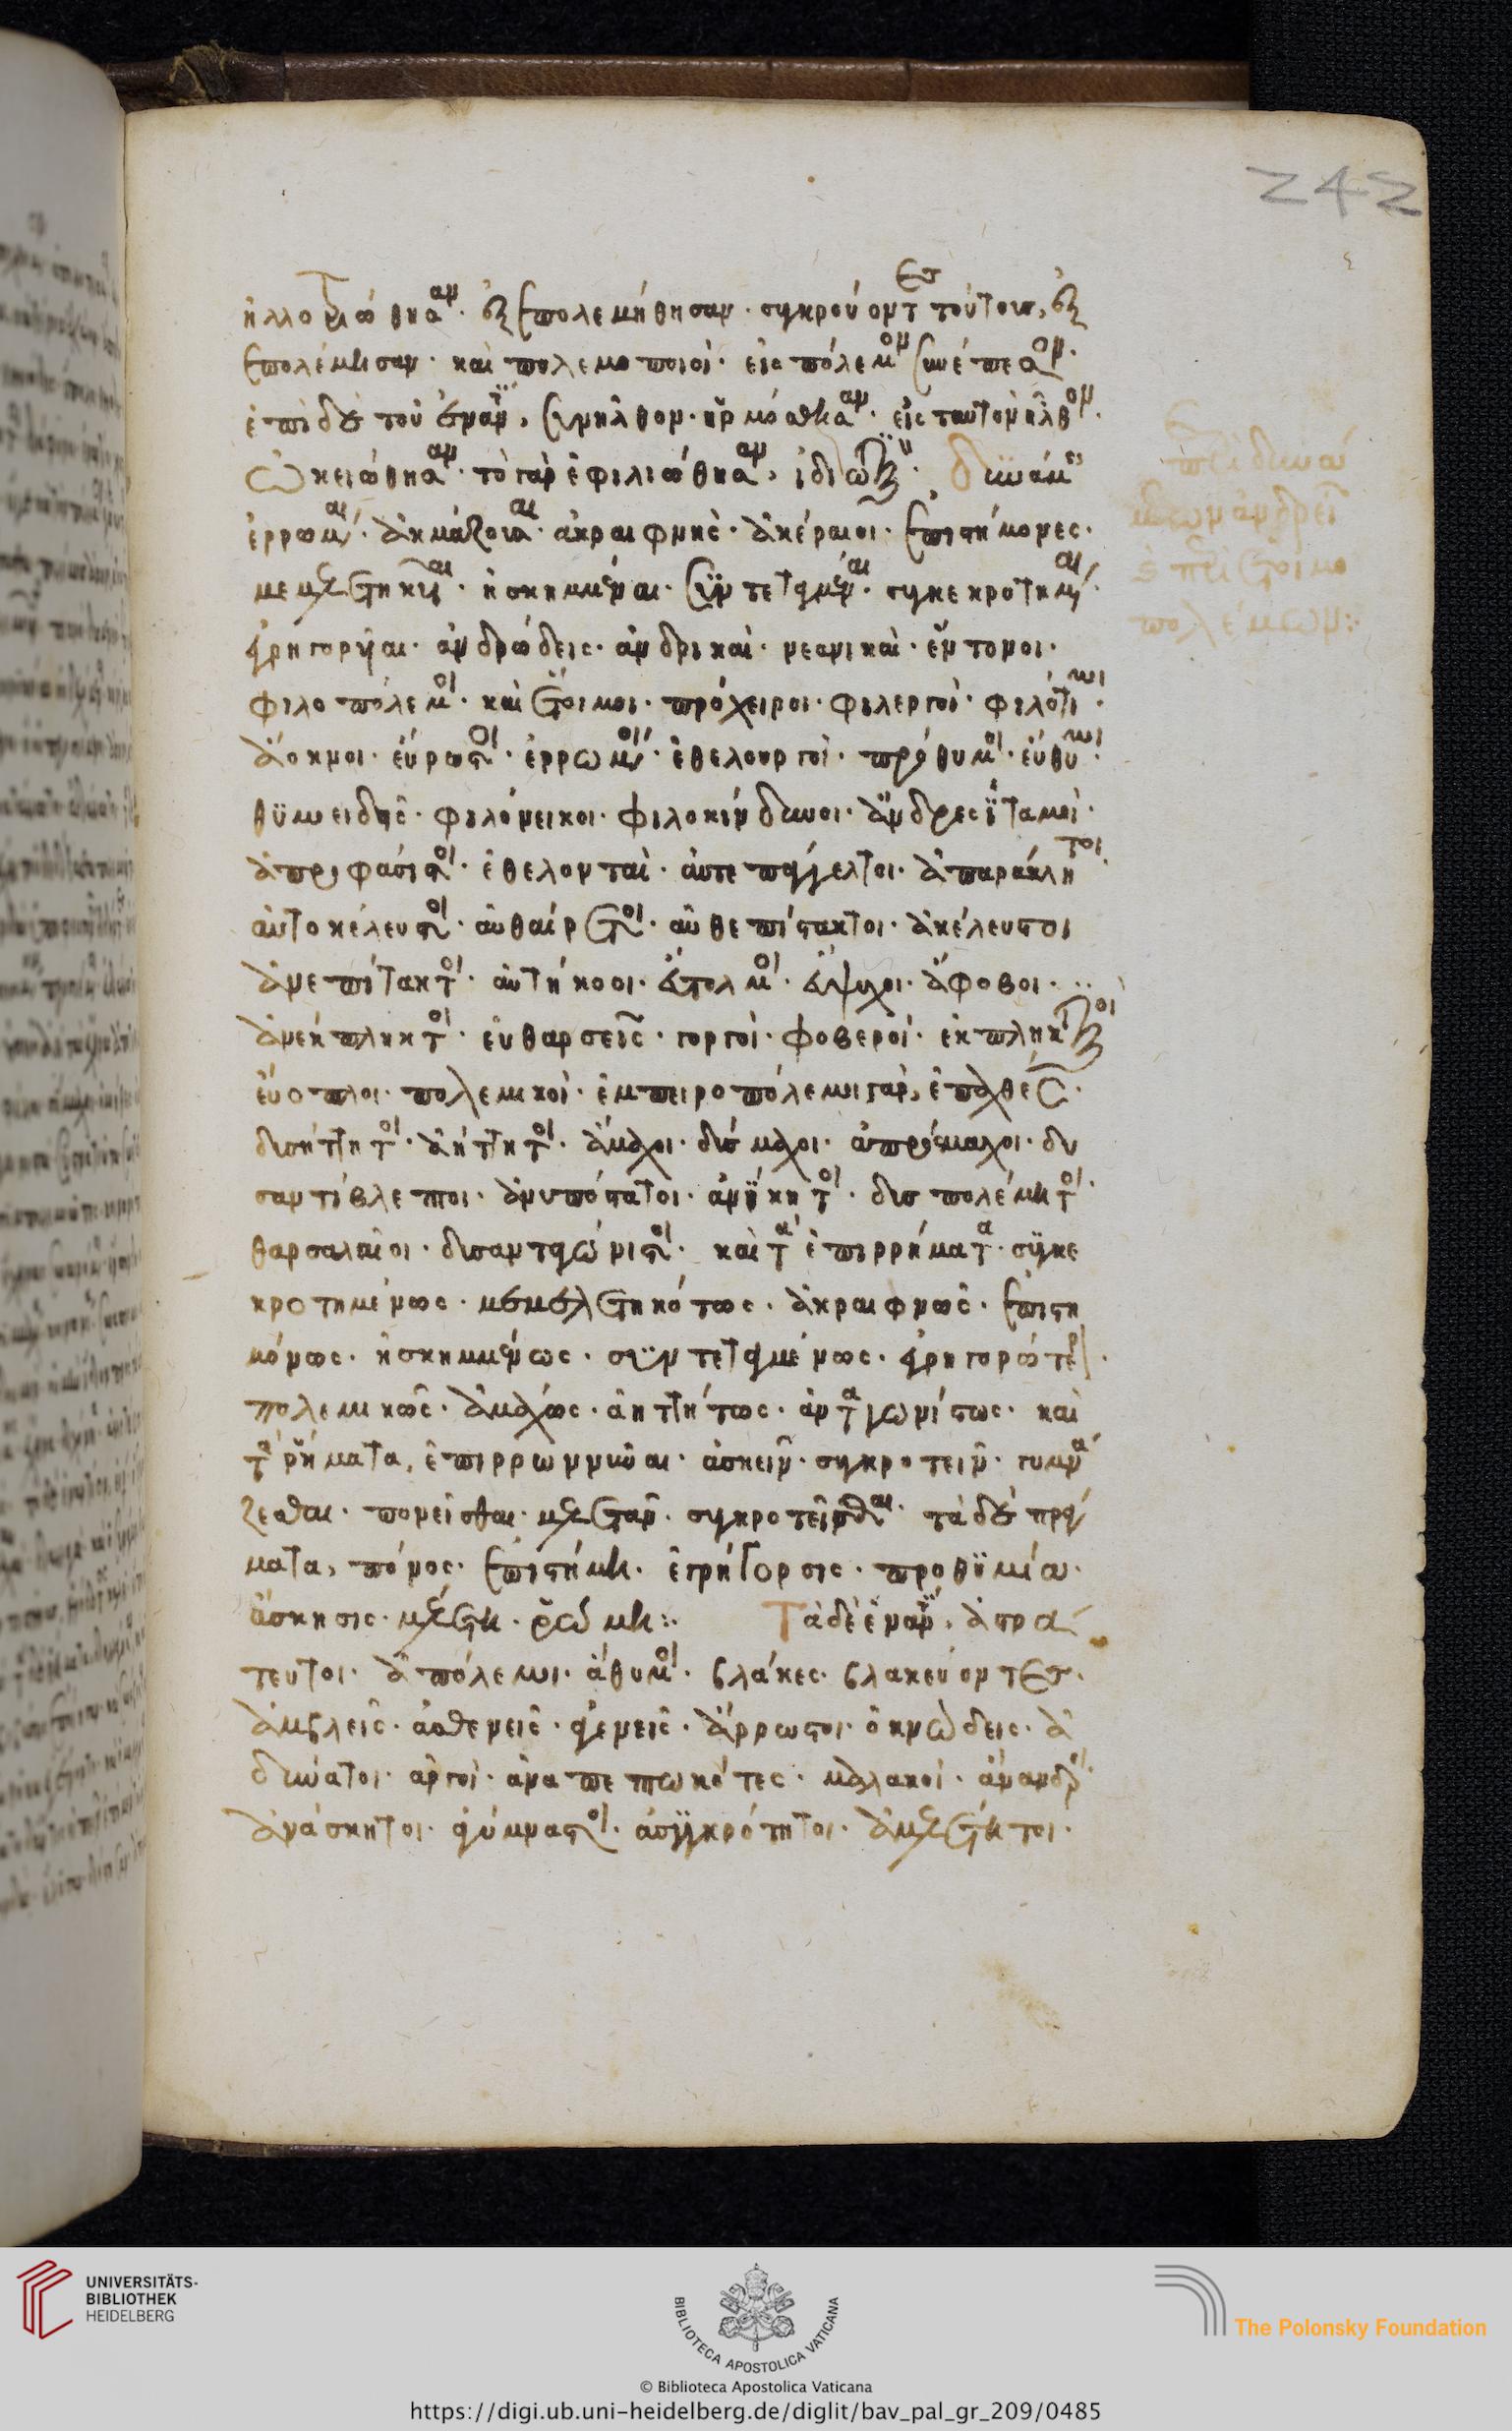 242
ἠλλοτριώθησαν. ἐξεπολεμήθησαν. συγκρούοντες τούτους, ἐξ
επολέμησαν. καὶ πολεμοποιοί. εἰς πόλεμον ἐνέπεσον.
ἐπὶ δὲ τοῦ ἐναντίου, συνῆλθον. ἡρμόσθησαν. εἰς ταυτὸν ἦλθον.
ὠκειώθησαν. τὸ γὰρ ἐφιλιώθησαν, δυνάμεις
ἐρρωμέναι. ἀκμάζουσαι. ἀκραιφνεῖς. ἀκέραιοι. ἐπιστήμονες.
μεμελετηκυῖαι. ἠσκημμέναι. συντεταγμέναι. συγκεκροτημέναι.
γρηγορῆαι. ἀνδρώδεις. ἀνδρικαὶ. νεανικαὶ. εὔτονοι.
φιλοπόλεμοι. καὶ ἕτοιμοι. πρόχειροι. φιλεργοὶ. φιλότιμοι.
ἄοκνοι. εὔρωστοι. ἐρρωμένοι. ἐθελουργοὶ. πρόθυμοι. εὔθυμοι.
θυμοειδεῖς. φιλόνεικοι. φιλοκίνδυνοι. ἄνδρες ἰταμοὶ.
ἀπροφάσιστοι. ἐθελονταὶ. αὐτεπάγγελτοι. ἀπαράκλητοι.
αὐτοκέλευστοι. αὐθαίρετοι. αὐθεπίτακτοι. ἀκέλευστοι
ἀνεπίτακτοι. αὐτήκοοι. εὔτολμοι. εὔψυχοι. ἄφοβοι.
ἀνέκπληκτοι. εὐθαρσεῖς. γοργοὶ. φοβεροὶ. ἐκπληκτικοὶ
εὔοπλοι. πολεμικοὶ. ἐμπειροπόλεμοι γὰρ, ἐπαχθές.
δυσήττητοι. ἀήττητοι. ἄμαχοι. δύσμαχοι. ἀπρόσμαχοι. δυ
σαντίβλεπτοι. ἀνυπόστατοι. ἀνίκητοι. δυσπολέμητοι.
θαρσαλαῖοι. δυσανταγώνιστοι. καὶ τὰ ἐπιρρήματα. συγκε
κροτημένως. μεμελετηκότως. ἀκραιφνῶς. ἐπιστη
μόνως. ἠσκημμένως. συντεταγμένως. γρηγορώτερον.
πολεμικῶς. ἀμάχως. ἀηττήτως. ἀνταγωνίστως. καὶ
τὰ ρήματα, ἐπιρρωννύναι. ἀσκεῖν. συγκροτεῖν. γυμνά
ζεσθαι. πονεῖσθαι. μελετᾶν. συγκροτεῖσθαι. τὰ δὲ πράγ
ματα, πόνος. ἐπιστήμη. ἐγρήγορσις. προθυμία.
ἄσκησις. μελέτη. ῥώμη:. Τὰ δὲ ἐναντία, ἀστρά
τευτοι. ἀπόλεμοι. ἄθυμοι. βλάκες. βλακεύοντες.
ἀμβλεῖς. ἀσθενεῖς. ἀγενεῖς. ἄρρωστοι. ὀκνώδεις. ἀ
δύνατοι. ἀργοὶ. ἀναπεπτωκότες. μαλακοὶ. ἄνανδροι
ἀνάσκητοι. ἀγύμναστοι. ἀσυγκρότητοι. ἀμελέτητοι.
UNIVERSITÄTS-
BIBLIOTHEK
HEIDELBERG
BIBLIOTECA APOSTOLICA VATICANA
© Biblioteca Apostolica Vaticana
The Polonsky Foundation
https://digi.ub.uni-heidelberg.de/diglit/bav_pal_gr_209/0485